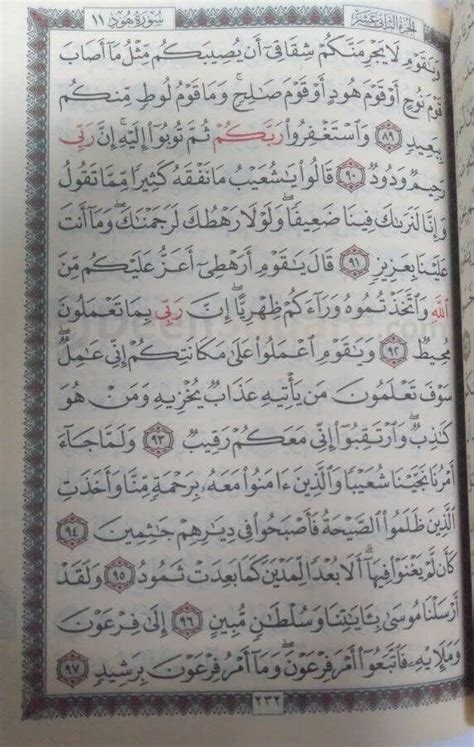 الجزء الثاني عشر سورة هود ١١
وَيَٰقَوْمِ لَا يَجْرِمَنَّكُمْ شِقَاقِىٓ أَن يُصِيبَكُم مِّثْلُ مَآ أَصَابَ
قَوْمَ نُوحٍ أَوْ قَوْمَ هُودٍ أَوْ قَوْمَ صَٰلِحٍ ۚ وَمَا قَوْمُ لُوطٍ مِّنكُم
بِبَعِيدٍ ٨٩ وَٱسْتَغْفِرُوا۟ رَبَّكُمْ ثُمَّ تُوبُوٓا۟ إِلَيْهِ ۚ إِنَّ رَبِّى
رَحِيمٌ وَدُودٌ ٩٠ قَالُوا۟ يَٰشُعَيْبُ مَا نَفْقَهُ كَثِيرًا مِّمَّا تَقُولُ
وَإِنَّا لَنَرَىٰكَ فِينَا ضَعِيفًا ۖ وَلَوْلَا رَهْطُكَ لَرَجَمْنَٰكَ ۖ وَمَآ أَنتَ
عَلَيْنَا بِعَزِيزٍ ٩١ قَالَ يَٰقَوْمِ أَرَهْطِىٓ أَعَزُّ عَلَيْكُم مِّنَ
ٱللَّهِ وَٱتَّخَذْتُمُوهُ وَرَآءَكُمْ ظِهْرِيًّا ۖ إِنَّ رَبِّى بِمَا تَعْمَلُونَ
مُحِيطٌ ٩٢ وَيَٰقَوْمِ ٱعْمَلُوا۟ عَلَىٰ مَكَانَتِكُمْ إِنِّى عَٰمِلٌ ۖ
سَوْفَ تَعْلَمُونَ مَن يَأْتِيهِ عَذَابٌ يُخْزِيهِ وَمَنْ هُوَ
كَٰذِبٌ ۖ وَٱرْتَقِبُوٓا۟ إِنِّى مَعَكُمْ رَقِيبٌ ٩٣ وَلَمَّا جَآءَ
أَمْرُنَا نَجَّيْنَا شُعَيْبًا وَٱلَّذِينَ ءَامَنُوا۟ مَعَهُۥ بِرَحْمَةٍ مِّنَّا وَأَخَذَتِ
ٱلَّذِينَ ظَلَمُوا۟ ٱلصَّيْحَةُ فَأَصْبَحُوا۟ فِى دِيَٰرِهِمْ جَٰثِمِينَ ٩٤
كَأَن لَّمْ يَغْنَوْا۟ فِيهَآ ۗ أَلَا بُعْدًا لِّمَدْيَنَ كَمَا بَعِدَتْ ثَمُودُ ٩٥ وَلَقَدْ
أَرْسَلْنَا مُوسَىٰ بِـَٔايَٰتِنَا وَسُلْطَٰنٍ مُّبِينٍ ٩٦ إِلَىٰ فِرْعَوْنَ
وَمَلَإِي۟هِۦ فَٱتَّبَعُوٓا۟ أَمْرَ فِرْعَوْنَ ۖ وَمَآ أَمْرُ فِرْعَوْنَ بِرَشِيدٍ ٩٧
٢٣٢